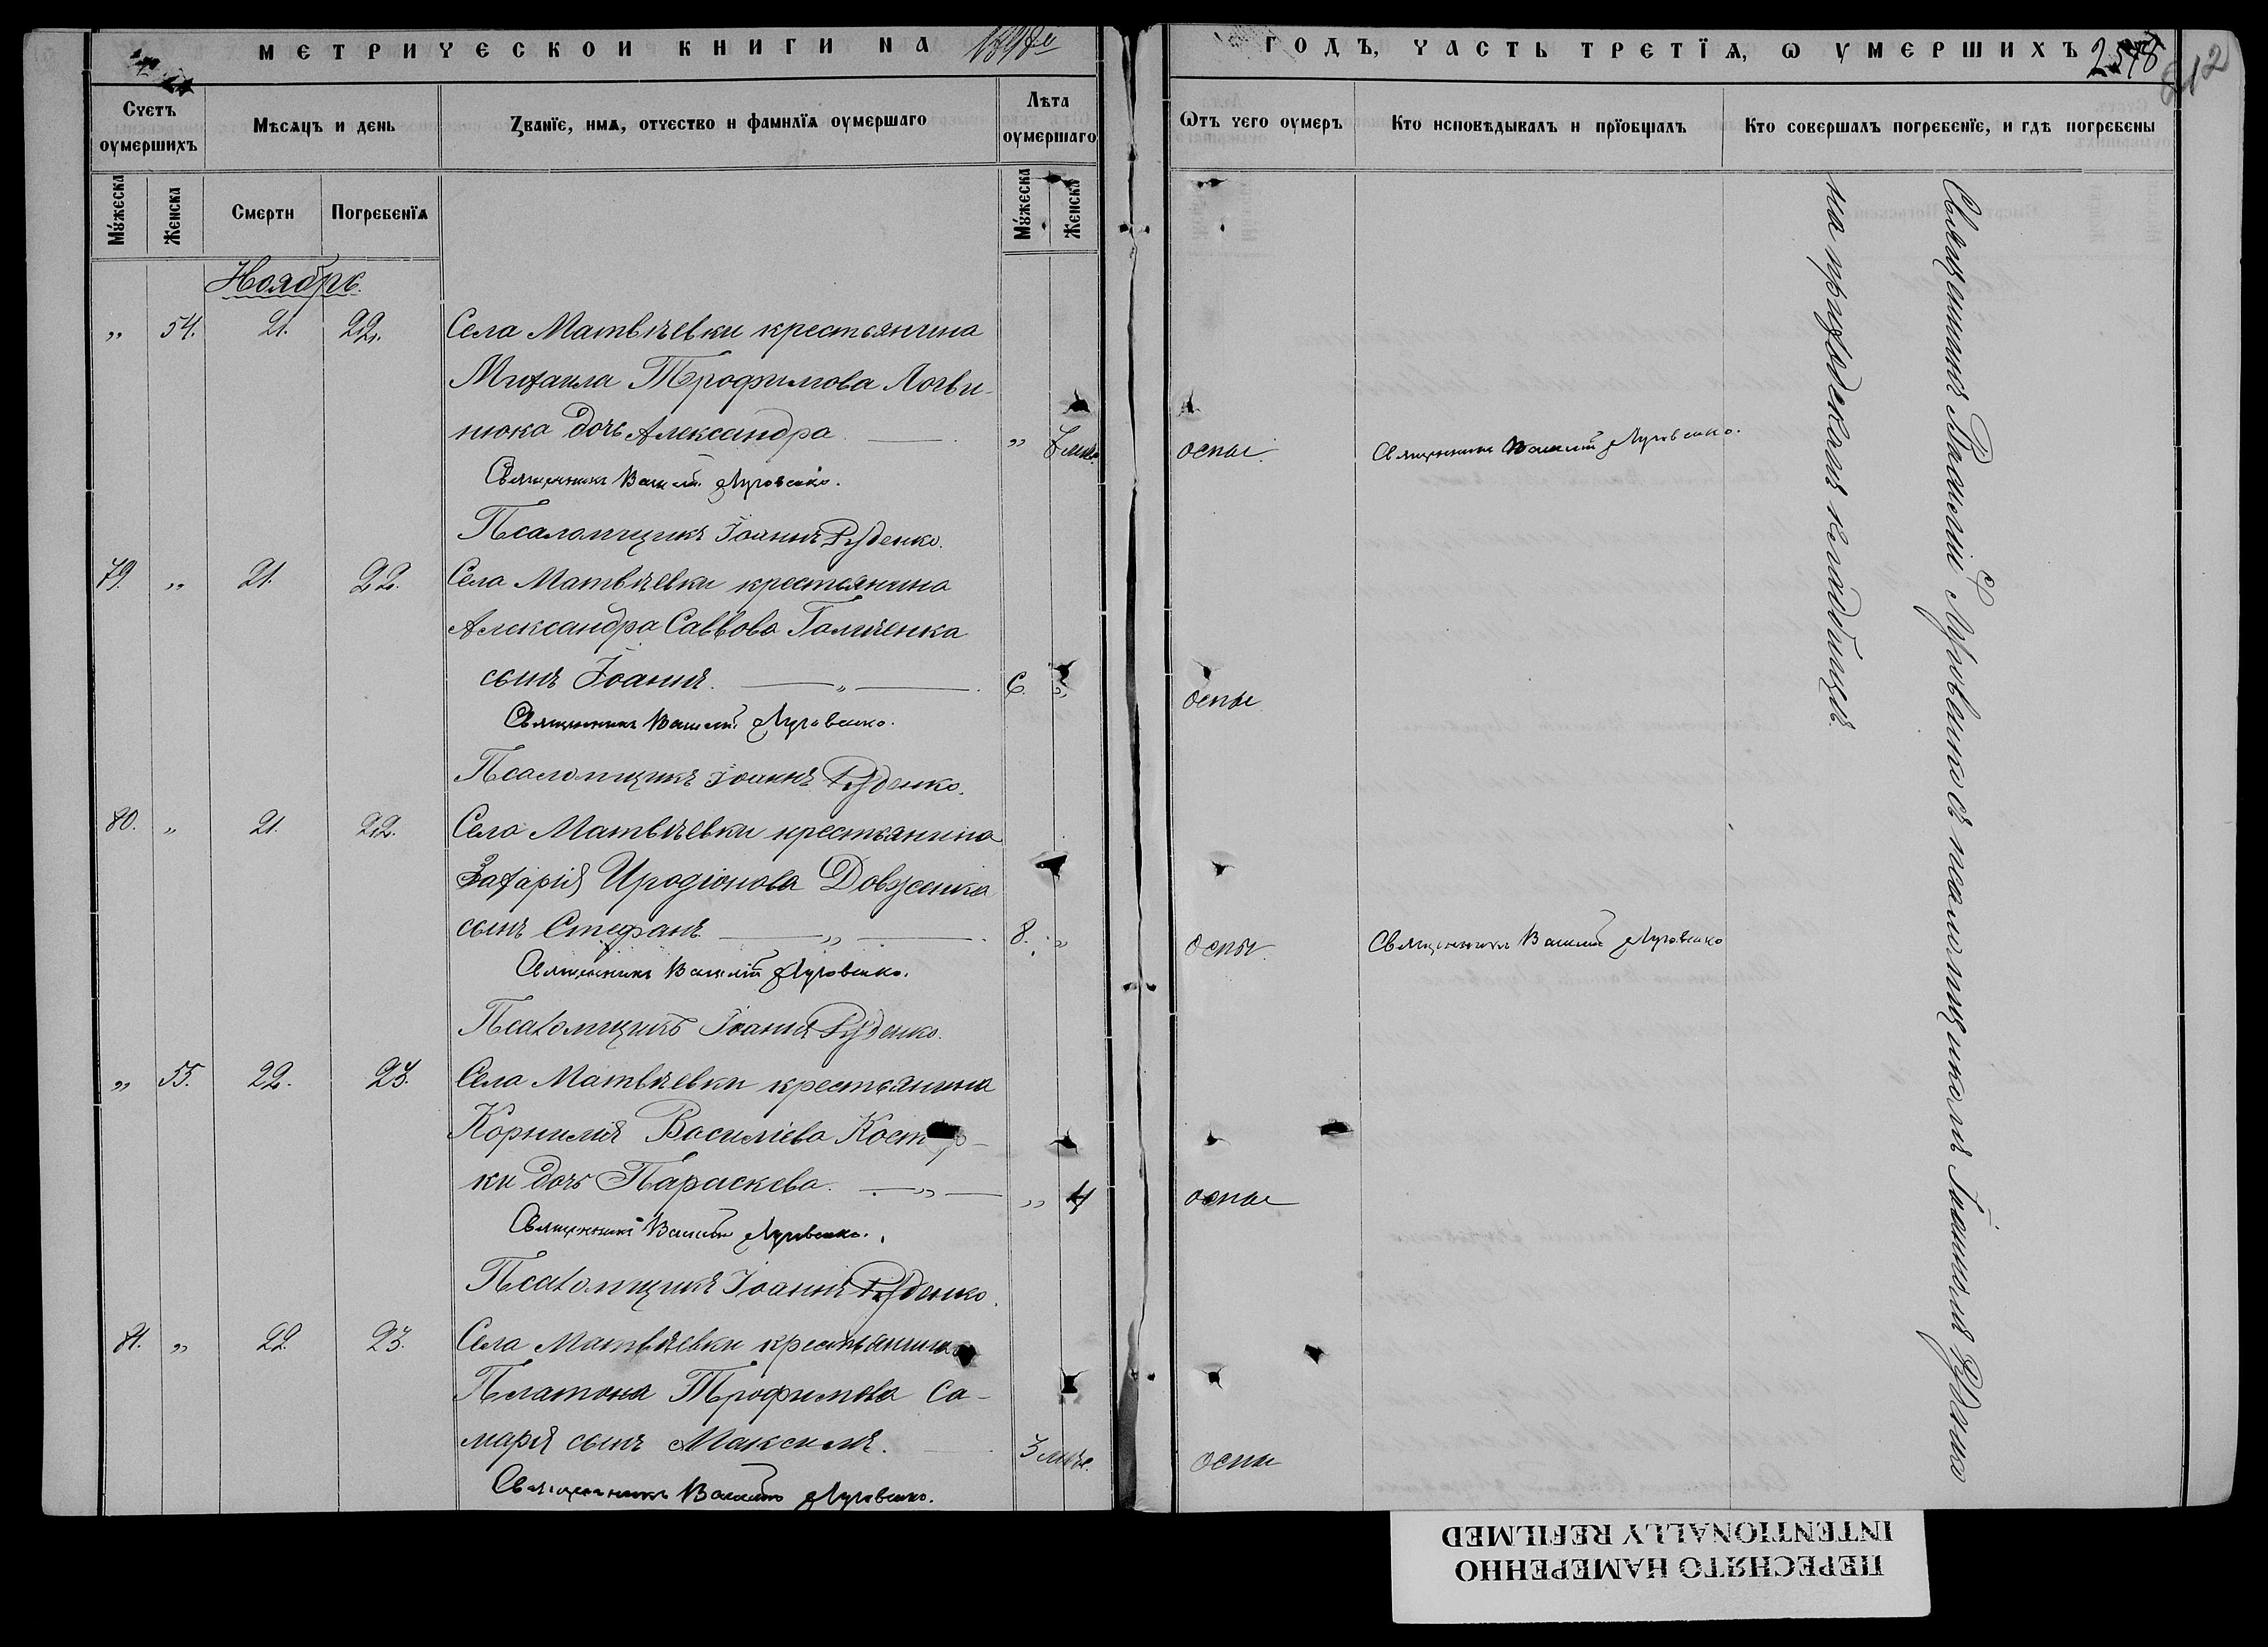 МЕТРИЧЕСКОЙ КНИГИ НА
ГОДЪ, ЧАСТЬ ТРЕТІЯ, Ѡ УМЕРШИХЪ
Счетъ оумершихъ
Мѣсяцъ и день
Званіе, имя, отчество и фамилія оумершаго
Лѣта оумершаго
Ѿтъ чего оумеръ
Кто исповѣдывалъ и пріобщалъ
Кто совершалъ погребеніе, и гдѣ погребены
Мужеска
Женска
Смерти
Погребенія
Мужеска
Женска
Ноябрь.
„ 54. 21. 22. Села Матвѣевки крестьянина
Михаила Трофимова Логви-
нюка дочь Александра „ оспы. Священникъ Василій Луговенко.
Священникъ Василій Луговенко.
Псаломщикъ Іоаннъ Руденко.
79. „ 21. 22. Села Матвѣевки крестьянина
Александра Саввова
сынъ Іоаннъ. 6. „ оспы
Священникъ Василій Луговенко.
Псаломщикъ Іоаннъ Руденко.
80. „ 21. 22. Села Матвѣевки крестьянина
Захарія Иродіонова Довженка
сынъ Стефанъ 8. „ оспы. Священникъ Василій Луговенко
Священникъ Василій Луговенко.
Псаломщикъ Іоаннъ Руденко.
„ 55. 22. 23. Села Матвѣевки крестьянина
Корнилія Василіева
ки дочь Параскева. „ 4 оспы
Священникъ Василій Луговенко.
Псаломщикъ Іоаннъ Руденко.
81. „ 22. 23. Села Матвѣевки крестьянина
Платона Трофимова Са-
маря сынъ Максимъ. 3 мѣс. оспы
Священникъ Василій Луговенко.
Священникъ Василій Луговенко съ псаломщикомъ Іоанномъ Руденко
на приходскомъ кладбищѣ.
ПЕРЕСНЯТО НАМЕРЕННО
INTENTIONALLY REFILMED